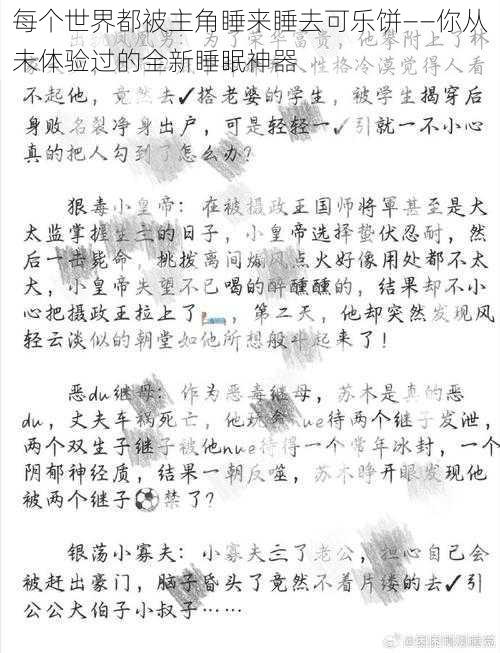 每个世界都被主角睡来睡去可乐饼——你从
未体验过的全新睡眠神器
不起他，竟然去✓搭老婆的学生，被学生揭穿后
身败名裂净身出户，可是轻轻一✓引就一不小心
真的把人勾到了怎么办？
狠毒小皇帝：在被摄政王国师将軍甚至是大
太监掌握生主的日子，小皇帝选择蛰伏忍耐，然
后一击毙命，挑拨离间煽风点火好像用处都不太
大，小皇帝失望不已喝的醉醺醺的，结果却不小
心把摄政王拉上了🛏️，第二天，他却突然发现风
轻云淡似的朝堂如他所想般斗起来了！
恶du继母：作为恶毒继母，苏木是真的恶
du，丈夫车祸死亡，他nue待两个继子发泄，
两个双生子继子被他nue待得一个常年冰封，一个
阴郁神经质，结果一朝反噬，苏木睁开眼发现他
被两个继子⚽禁了？
银荡小寡夫：小寡夫亖了老公，担心自己会
被赶出豪门，脑子昏头了竟然不着片缕的去✓引
公公大伯子小叔子……